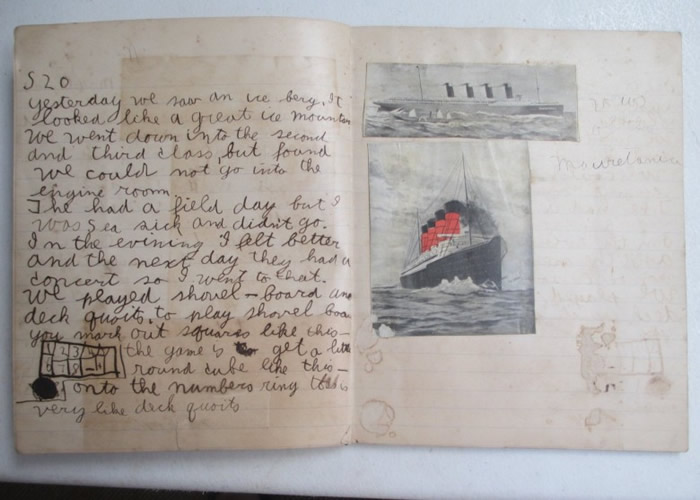 S 20
yesterday we saw an ice berg. It
looked like a great ice mountain
We went down into the second
and third class, but found
we could not go into the
engine room
The had a field day but I
was Sea sick and didnt go.
In the evening I felt better
and the next day they had a
concert so I went to that.
We played shovel-board and
deck quoits. to play shovel boa
you mark out squares like this—
2 3 the game is get a little
7 8 -10 round cube like this—
onto the numbers ring t is
very like deck quoits
Mauretania